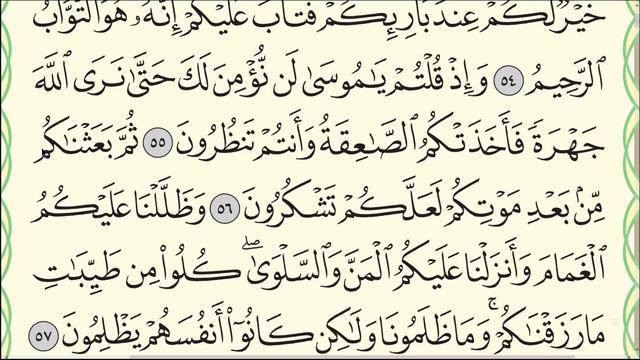 خَيْرٌ لَّكُمْ عِندَ بَارِئِكُمْ فَتَابَ عَلَيْكُمْ إِنَّهُۥ هُوَ ٱلتَّوَّابُ
ٱلرَّحِيمُ ٥٤ وَإِذْ قُلْتُمْ يَٰمُوسَىٰ لَن نُّؤْمِنَ لَكَ حَتَّىٰ نَرَى ٱللَّهَ
جَهْرَةً فَأَخَذَتْكُمُ ٱلصَّٰعِقَةُ وَأَنتُمْ تَنظُرُونَ ٥٥ ثُمَّ بَعَثْنَٰكُم
مِّنۢ بَعْدِ مَوْتِكُمْ لَعَلَّكُمْ تَشْكُرُونَ ٥٦ وَظَلَّلْنَا عَلَيْكُمُ
ٱلْغَمَامَ وَأَنزَلْنَا عَلَيْكُمُ ٱلْمَنَّ وَٱلسَّلْوَىٰۖ كُلُوا۟ مِن طَيِّبَٰتِ
مَا رَزَقْنَٰكُمْۚ وَمَا ظَلَمُونَا وَلَٰكِن كَانُوٓا۟ أَنفُسَهُمْ يَظْلِمُونَ ٥٧